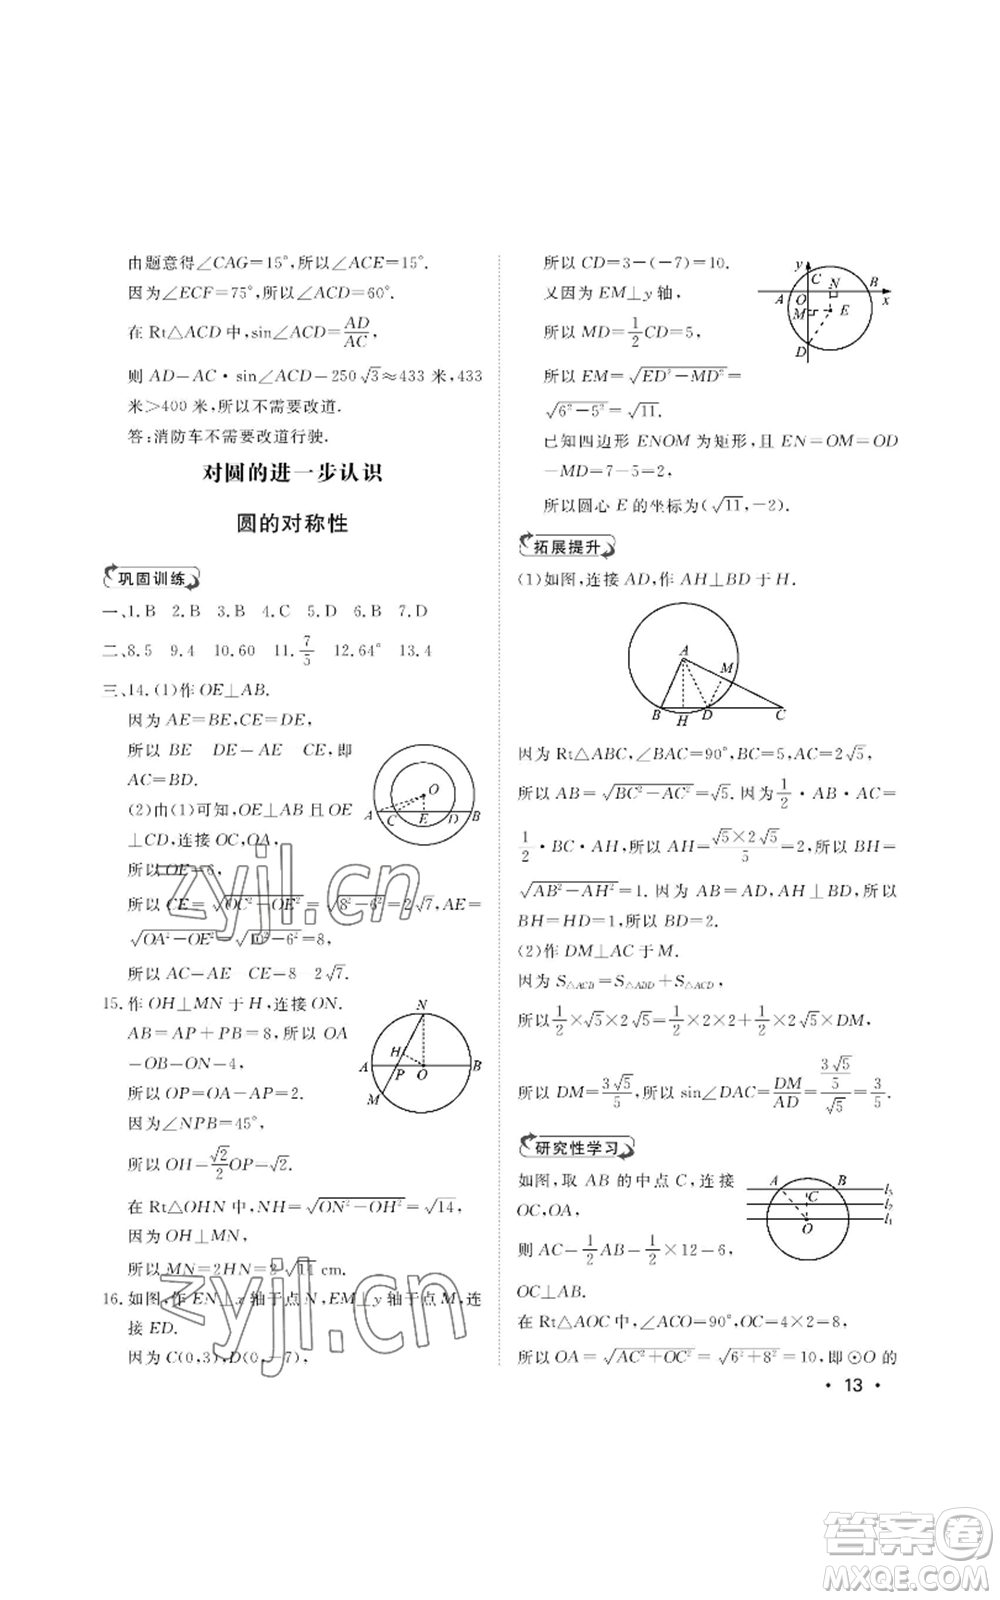 由题意得∠CAG=15°,所以∠ACE=15°.
因为∠ECF=75°,所以∠ACD=60°.
在 Rt△ACD 中,sin∠ACD=AD/AC,
则 AD—AC·sin∠ACD—250√3≈433 米,433
米>400 米,所以不需要改道.
答:消防车不需要改道行驶.
对圆的进一步认识
圆的对称性
巩固训练
一、1.B 2.B 3.B 4.C 5.D 6.B 7.D
二、8.5 9.4 10.60 11.7/5 12.64° 13.4
三、14.(1)作 OE⊥AB.
因为 AE=BE,CE=DE,
所以 BE DE—AE CE,即
AC=BD.
(2)由(1)可知,OE⊥AB 且 OE
⊥CD,连接 OC,OA,
所以 OE=6,
所以 CE=√(OC²-OE²)=√(8²-6²)=2√7,AE=
√(OA²-OE²)-√(10²-6²)=8,
所以 AC—AE CE—8 2√7.
O
A C E D B
15.作 OH⊥MN 于 H,连接 ON.
AB=AP+PB=8,所以 OA
—OB—ON—4,
所以 OP=OA-AP=2.
因为∠NPB=45°,
所以 OH—√2/2 OP—√2.
在 Rt△OHN 中,NH=√(ON²-OH²)=√14,
因为 OH⊥MN,
所以 MN=2HN=2√14 cm.
N
H
A P O B
M
16.如图,作 EN⊥x 轴于点 N,EM⊥y 轴于点 M,连
接 ED.
因为 C(0,3),D(0,-7),
所以 CD=3-(-7)=10.
又因为 EM⊥y 轴,
所以 MD=1/2 CD=5,
所以 EM=√(ED²-MD²)=
√(6²-5²)=√11.
已知四边形 ENOM 为矩形,且 EN=OM=OD
—MD=7-5=2.
所以圆心 E 的坐标为(√11,-2).
y C N B
A O x
M E
D
拓展提升
(1)如图,连接 AD,作 AH⊥BD 于 H.
A
M
B H D C
因为 Rt△ABC,∠BAC=90°,BC=5,AC=2√5,
所以 AB=√(BC²-AC²)=√5. 因为 1/2·AB·AC=
1/2·BC·AH,所以 AH=(√5×2√5)/5=2,所以 BH=
√(AB²-AH²)=1. 因为 AB=AD,AH⊥BD,所以
BH=HD=1,所以 BD=2.
(2)作 DM⊥AC 于 M.
因为 S△ACB=S△ABD+S△ACD,
所以 1/2×√5×2√5=1/2×2×2+1/2×2√5×DM,
所以 DM=3√5/5,所以 sin∠DAC=DM/AD=(3√5/5)/√5=3/5.
研究性学习
如图,取 AB 的中点 C,连接
OC,OA,
则 AC—1/2 AB—1/2×12—6,
OC⊥AB.
A B
C l₃
l₂
O l₁
在 Rt△AOC 中,∠ACO=90°,OC=4×2=8,
所以 OA=√(AC²+OC²)=√(6²+8²)=10,即⊙O 的
· 13 ·
zyjl.cn
zyjl.cn
答案卷
MXQE.COM